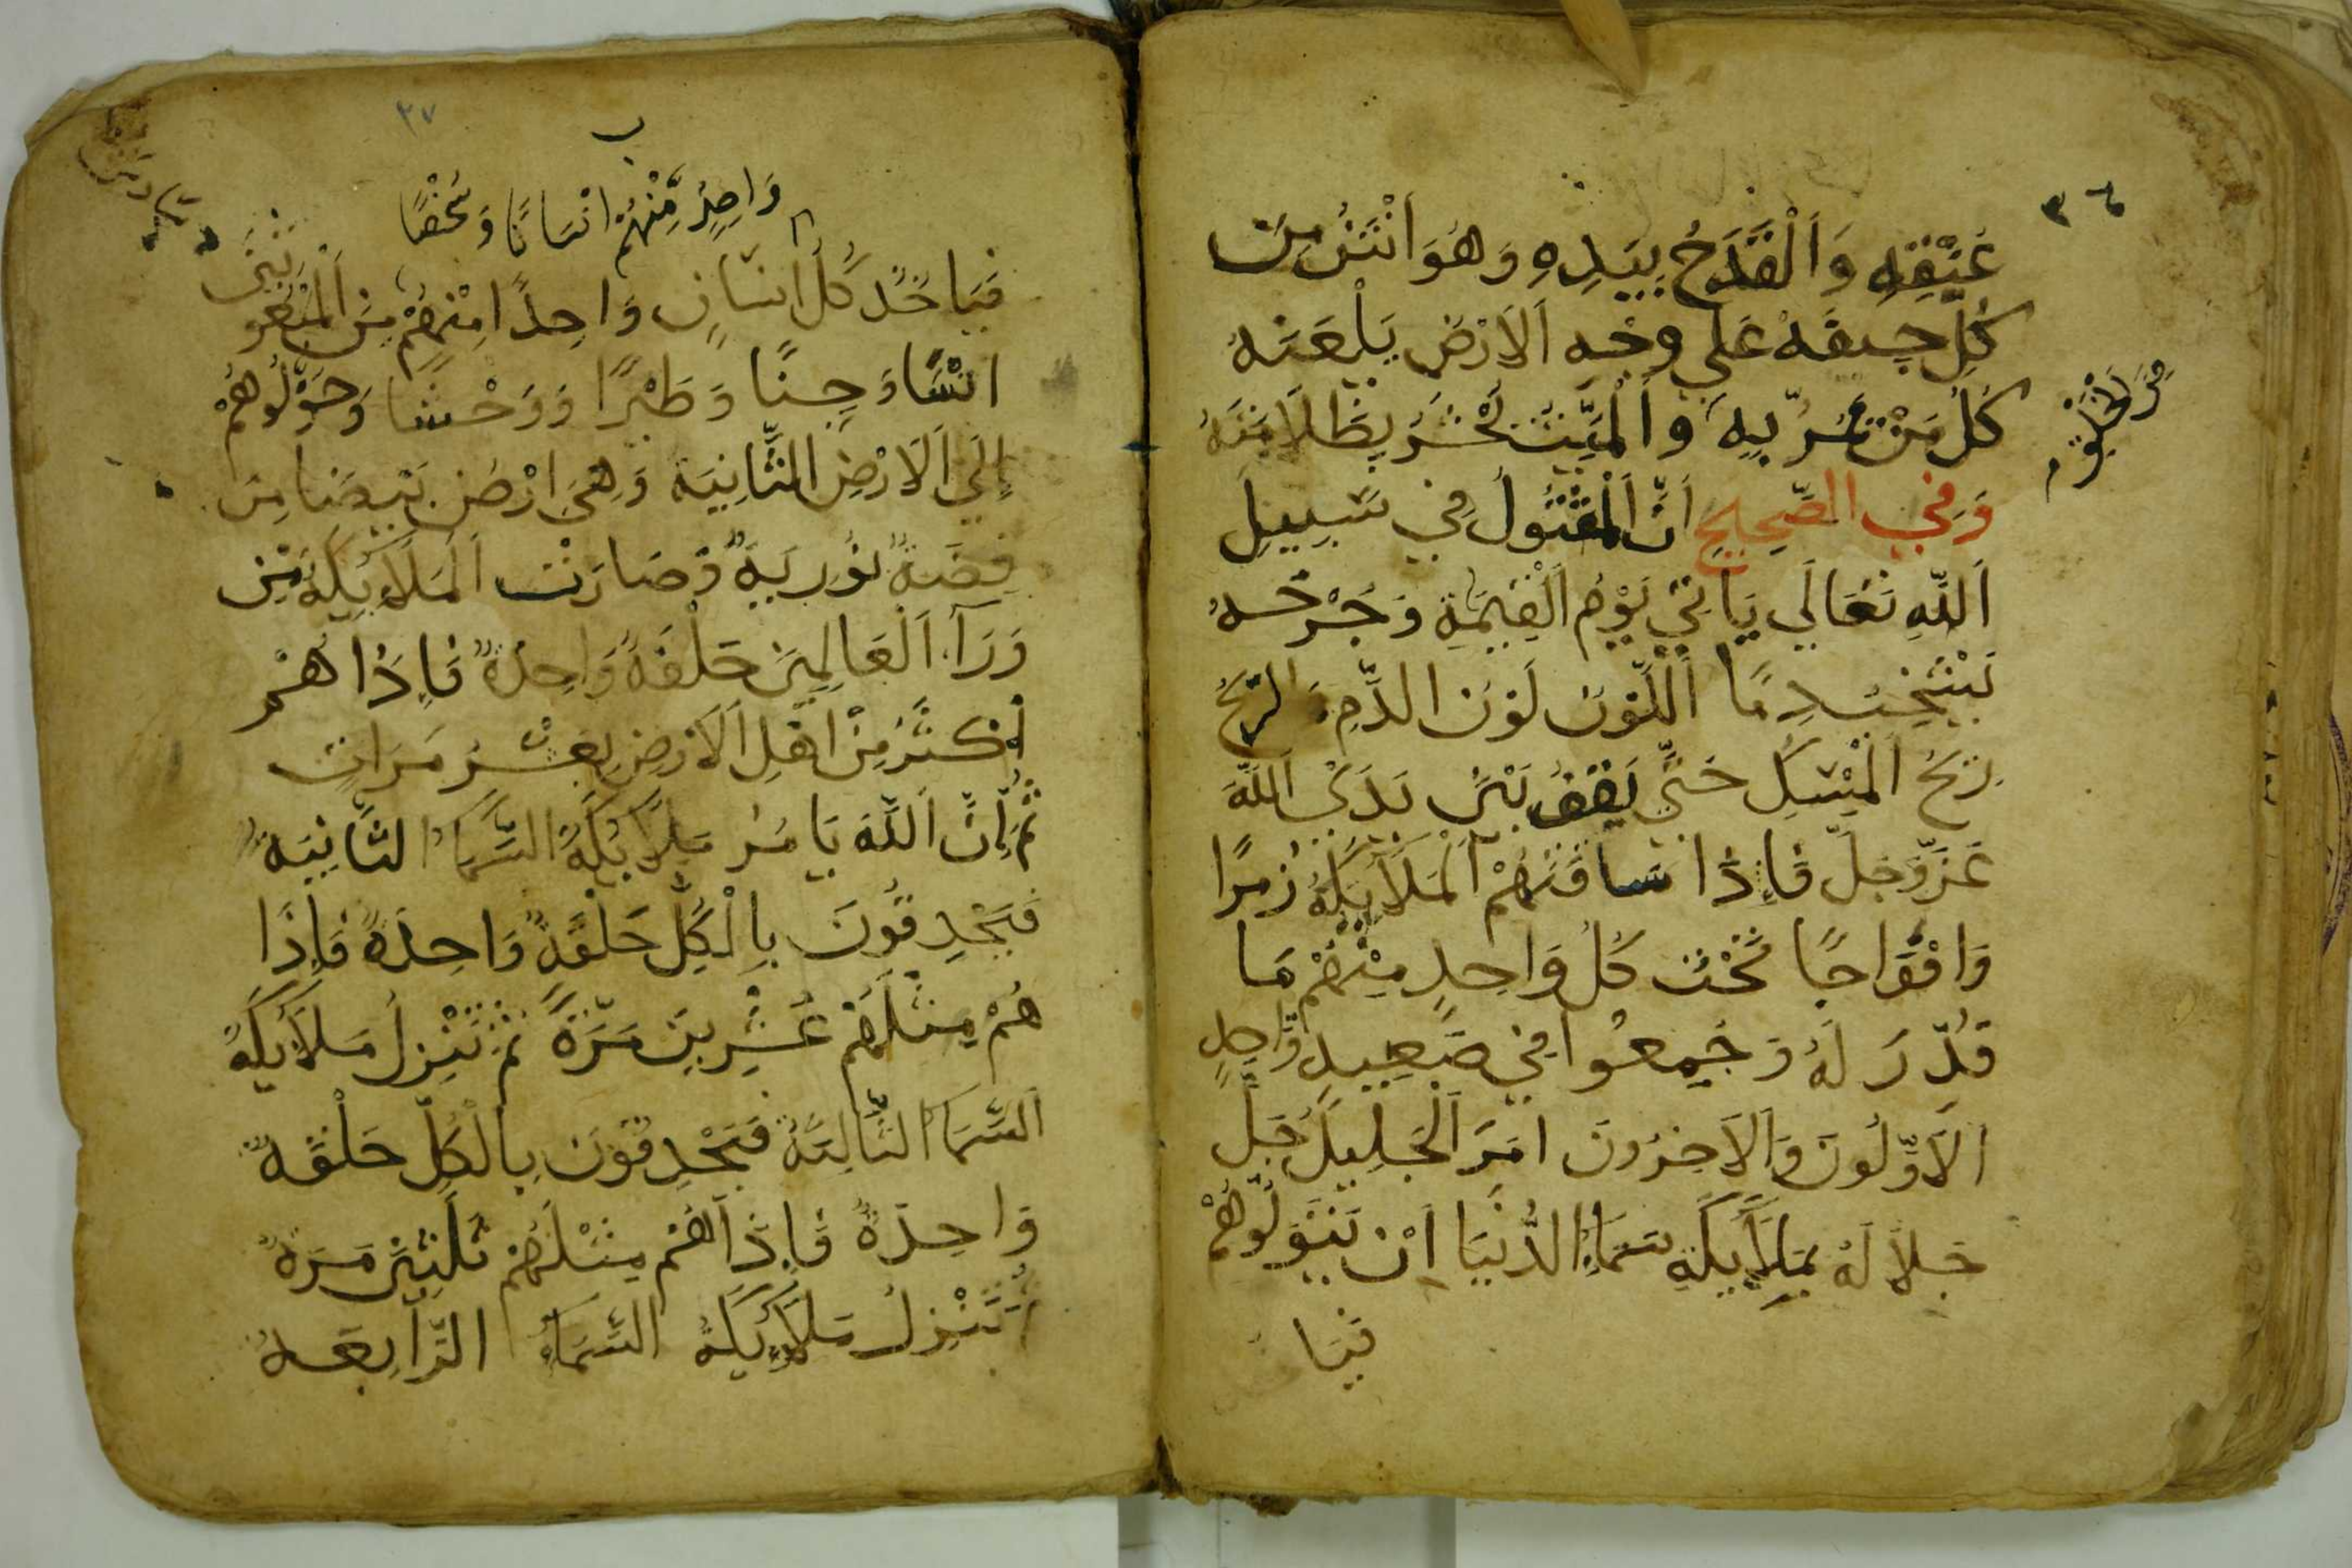 ٣٦
عُنُقِهِ وَالْقَدَحُ بِيَدِهِ وَهُوَ أَنْتَنُ مِنْ
كُلِّ جِيفَةٍ عَلَى وَجْهِ الْأَرْضِ يَلْعَنُهُ
كُلُّ مَنْ يَمُرُّ بِهِ وَالْمَيِّتُ يُحْشَرُ بِظَلَامَتِهِ
مِنَ الْخَلْقِ
وَفِي الصَّحِيحِ أَنَّ الْمَقْتُولَ فِي سَبِيلِ
اللَّهِ تَعَالَى يَاتِي يَوْمَ الْقِيَمَةِ وَجُرْحُهُ
يَشْخُبُ دِمًا اللَّوْنُ لَوْنُ الدَّمِ وَالرِّيحُ
رِيحُ الْمِسْكِ حَتَّى يَقِفَ بَيْنَ يَدَيْ اللَّهِ
عَزَّ وَجَلَّ فَإِذَا سَاقَتْهُمْ الْمَلَايِكَةُ زُمَرًا
وَافْوَاجًا تَحْتَ كُلِّ وَاحِدٍ مِنْهُمْ مَا
قُدِّرَ لَهُ وَجُمِعُوا فِي صَعِيدٍ وَّاحِدٍ
الْأَوَّلُونَ وَالْآخِرُونَ امَرَ الْجَلِيلُ جَلَّ
جَلَالَهُ بِمَلَايِكَةِ سَمَاءِ الدُّنْيَا أَنْ يَتَوَلُّوهُمْ
فيا
٣٧
ب
وَاحِدٍ مِّنْهُمْ انْسَانًا وَشَخْصًا
فَيَاخُذُ كُلُّ انْسَانٍ وَاحِدًا مِنْهُمْ مِنَ الْمَبْعُوثِينَ
انْسًا وَجِنًّا وَطَيْرًا وَوَحْشًا وَحَوَّلُوهُمْ
إِلَى الْأَرْضِ الثَّانِيَةِ وَهِيَ ارْضٌ بَيْضَا مِنْ
فِضَّةٍ نُورِيَّةٍ وَصَارَتْ الْمَلَايِكَةُ مِنْ
وَرَآءِ الْعَالَمِينَ حَلْقَةً وَاحِدَةً فَإِذَا هُمْ
أَكْثَرُ مِنْ اهْلِ الْأَرْضِ بِعَشْرِ مَرَاتٍ
ثُمَّ إِنَّ اللَّهَ يَامُرُ مَلَايِكَةَ السَّمَاءِ الثَّانِيَةِ
فَيَحْدِقُونَ بِالْكُلِّ حَلْقَةً وَاحِدَةً فَإِذَا
هُمْ مِثْلَهُمْ عِشْرِينَ مَرَّةً ثُمَّ تَنْزِلُ مَلَايِكَةُ
السَّمَاءِ الثَّالِثَةِ فَيَحْدِقُونَ بِالْكُلِّ حَلْقَةً
وَاحِدَةً فَإِذَا هُمْ مِثْلَهُمْ ثَلَثِينَ مَرَةً
ثُمَّ تَنْزِلُ مَلَايِكَةُ السَّمَاءِ الرَّابِعَةِ